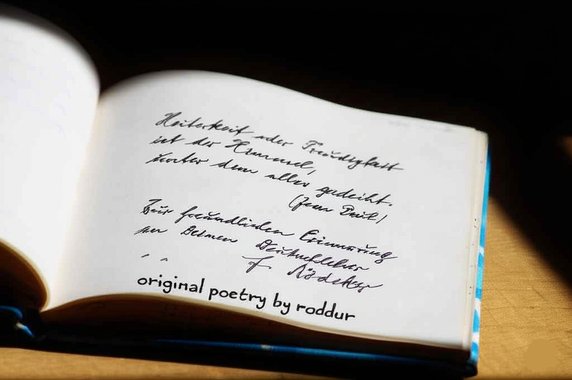 Heiterkeit oder Freudigkeit
ist der Himmel,
unter dem alles gedeiht.
(Jean Paul)
Zur freundlichen Erinnerung
an Deinen Deutschlehrer
original poetry by roddur